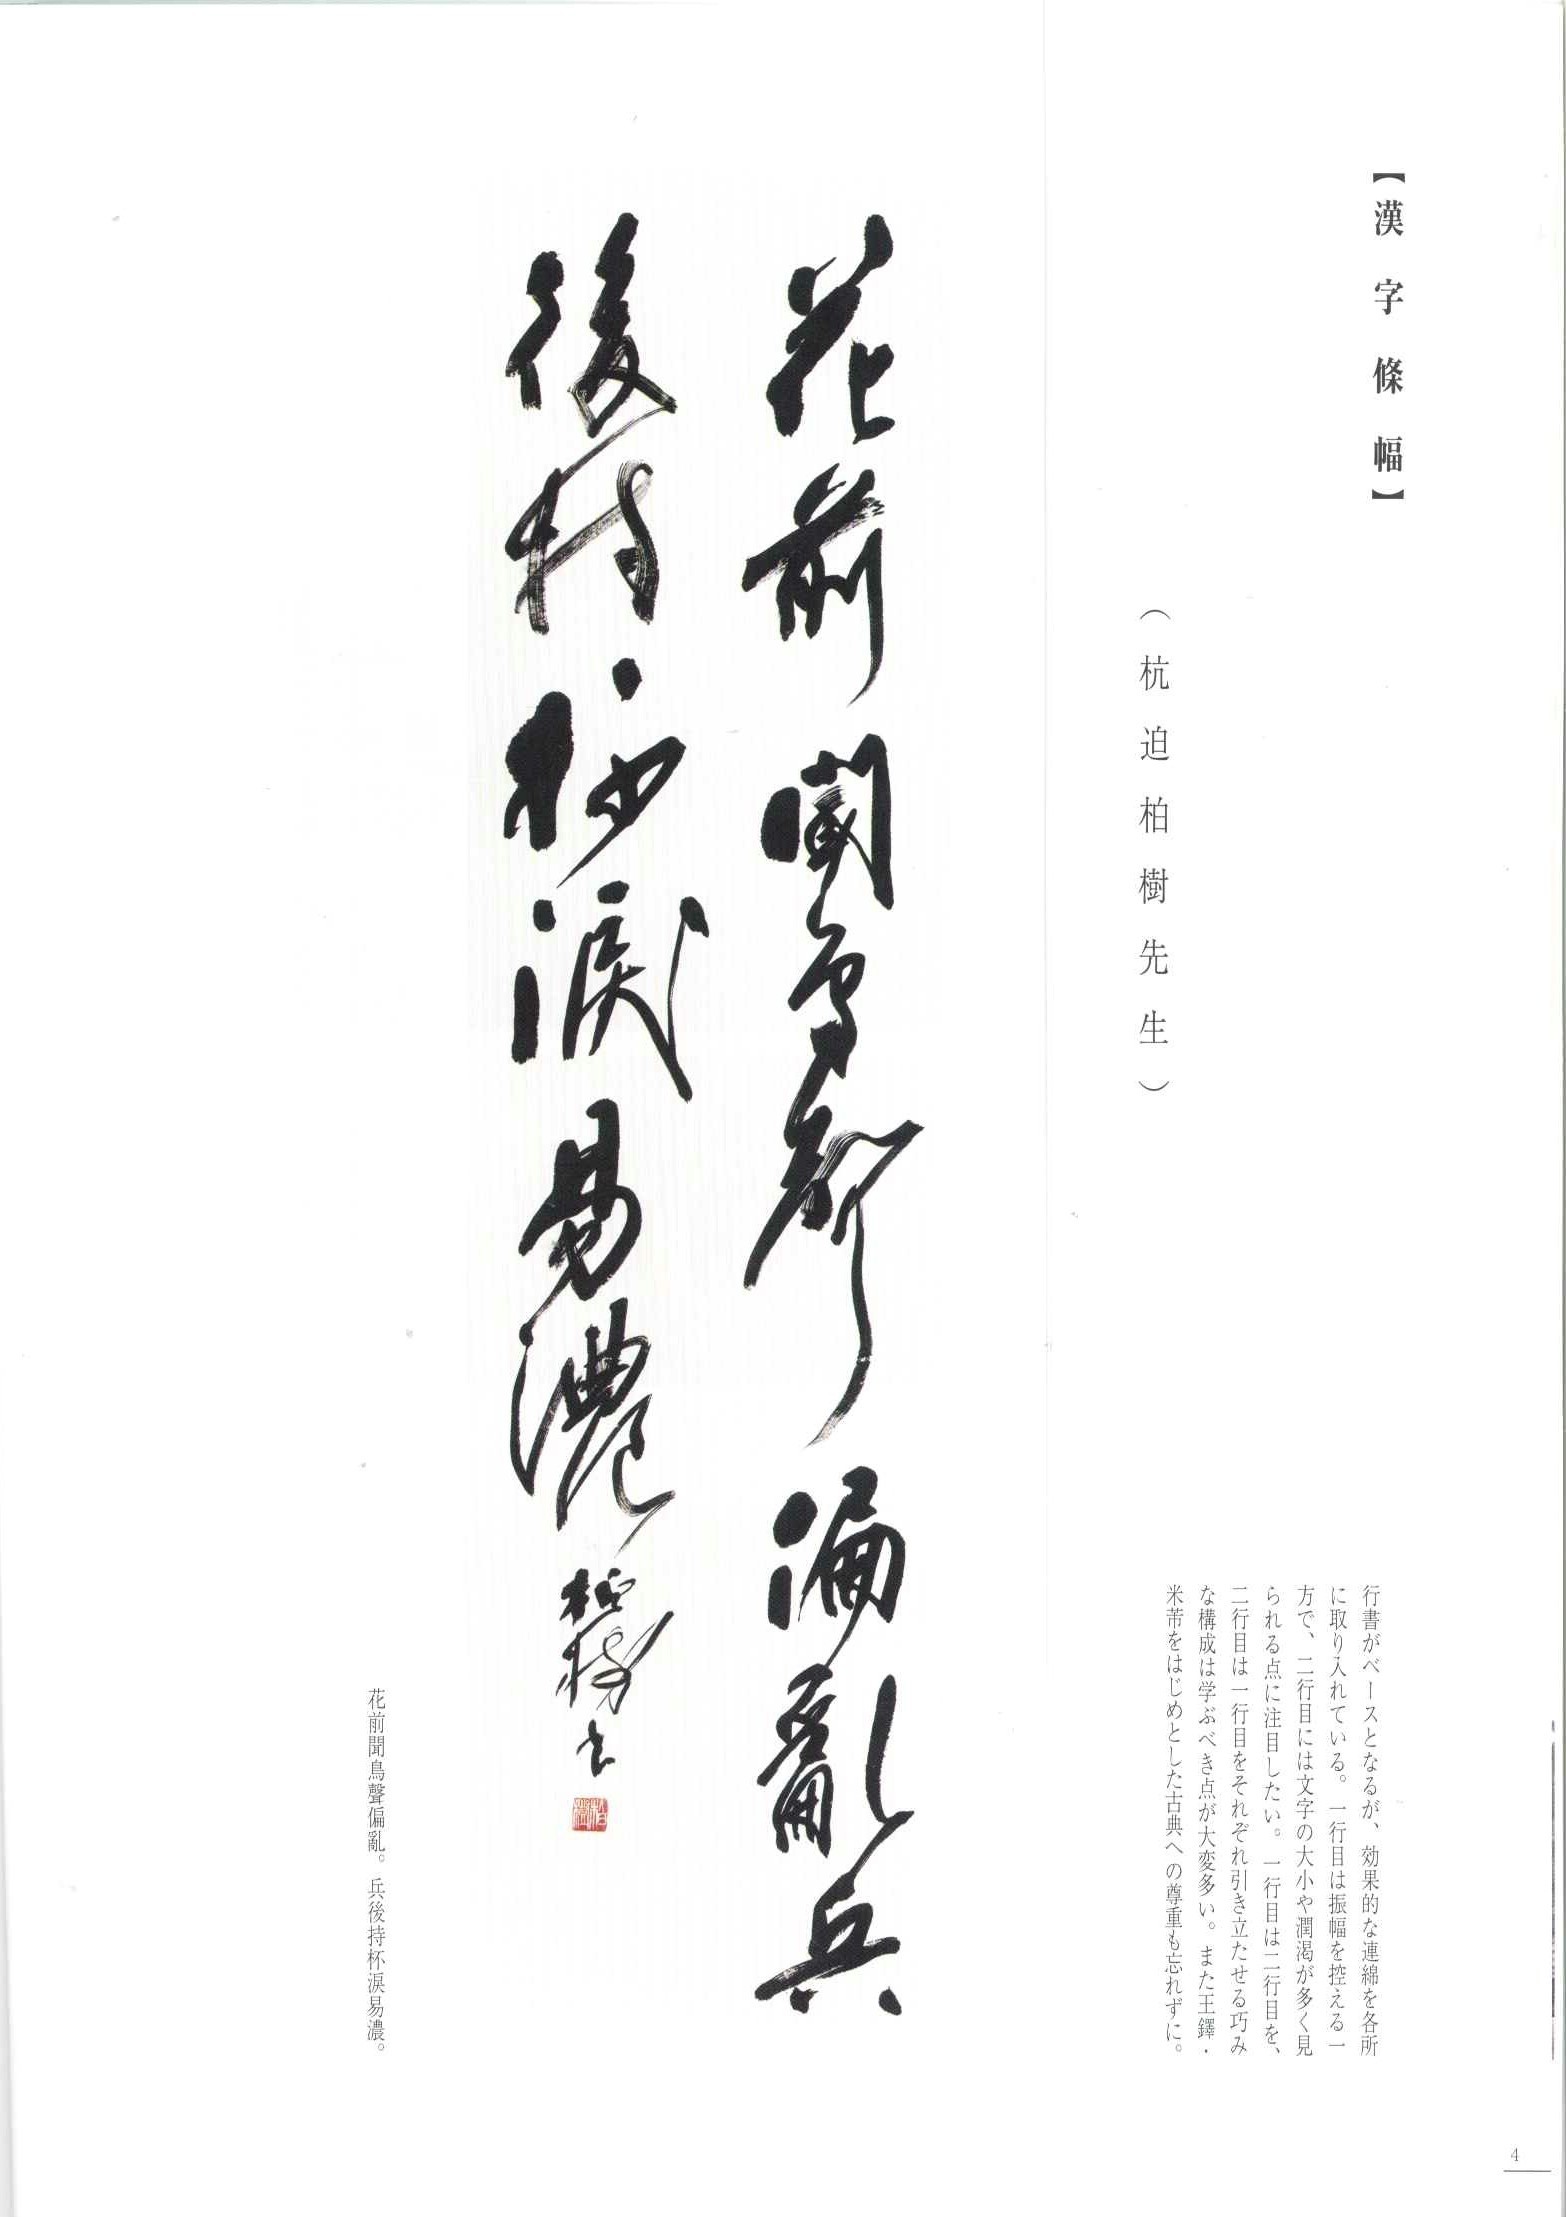 【漢字條幅】
（杭迫柏樹先生）
行書がベースとなるが、効果的な連綿を各所
に取り入れている。一行目は振幅を控える一
方で、二行目には文字の大小や潤渇が多く見
られる点に注目したい。一行目は二行目を、
二行目は一行目をそれぞれ引き立たせる巧み
な構成は学ぶべき点が大変多い。また王鐸・
米芾をはじめとした古典への尊重も忘れずに。
花前聞鳥聲偏亂兵
後持杯淚易濃 柏樹書
花前聞鳥聲偏亂。兵後持杯淚易濃。
4